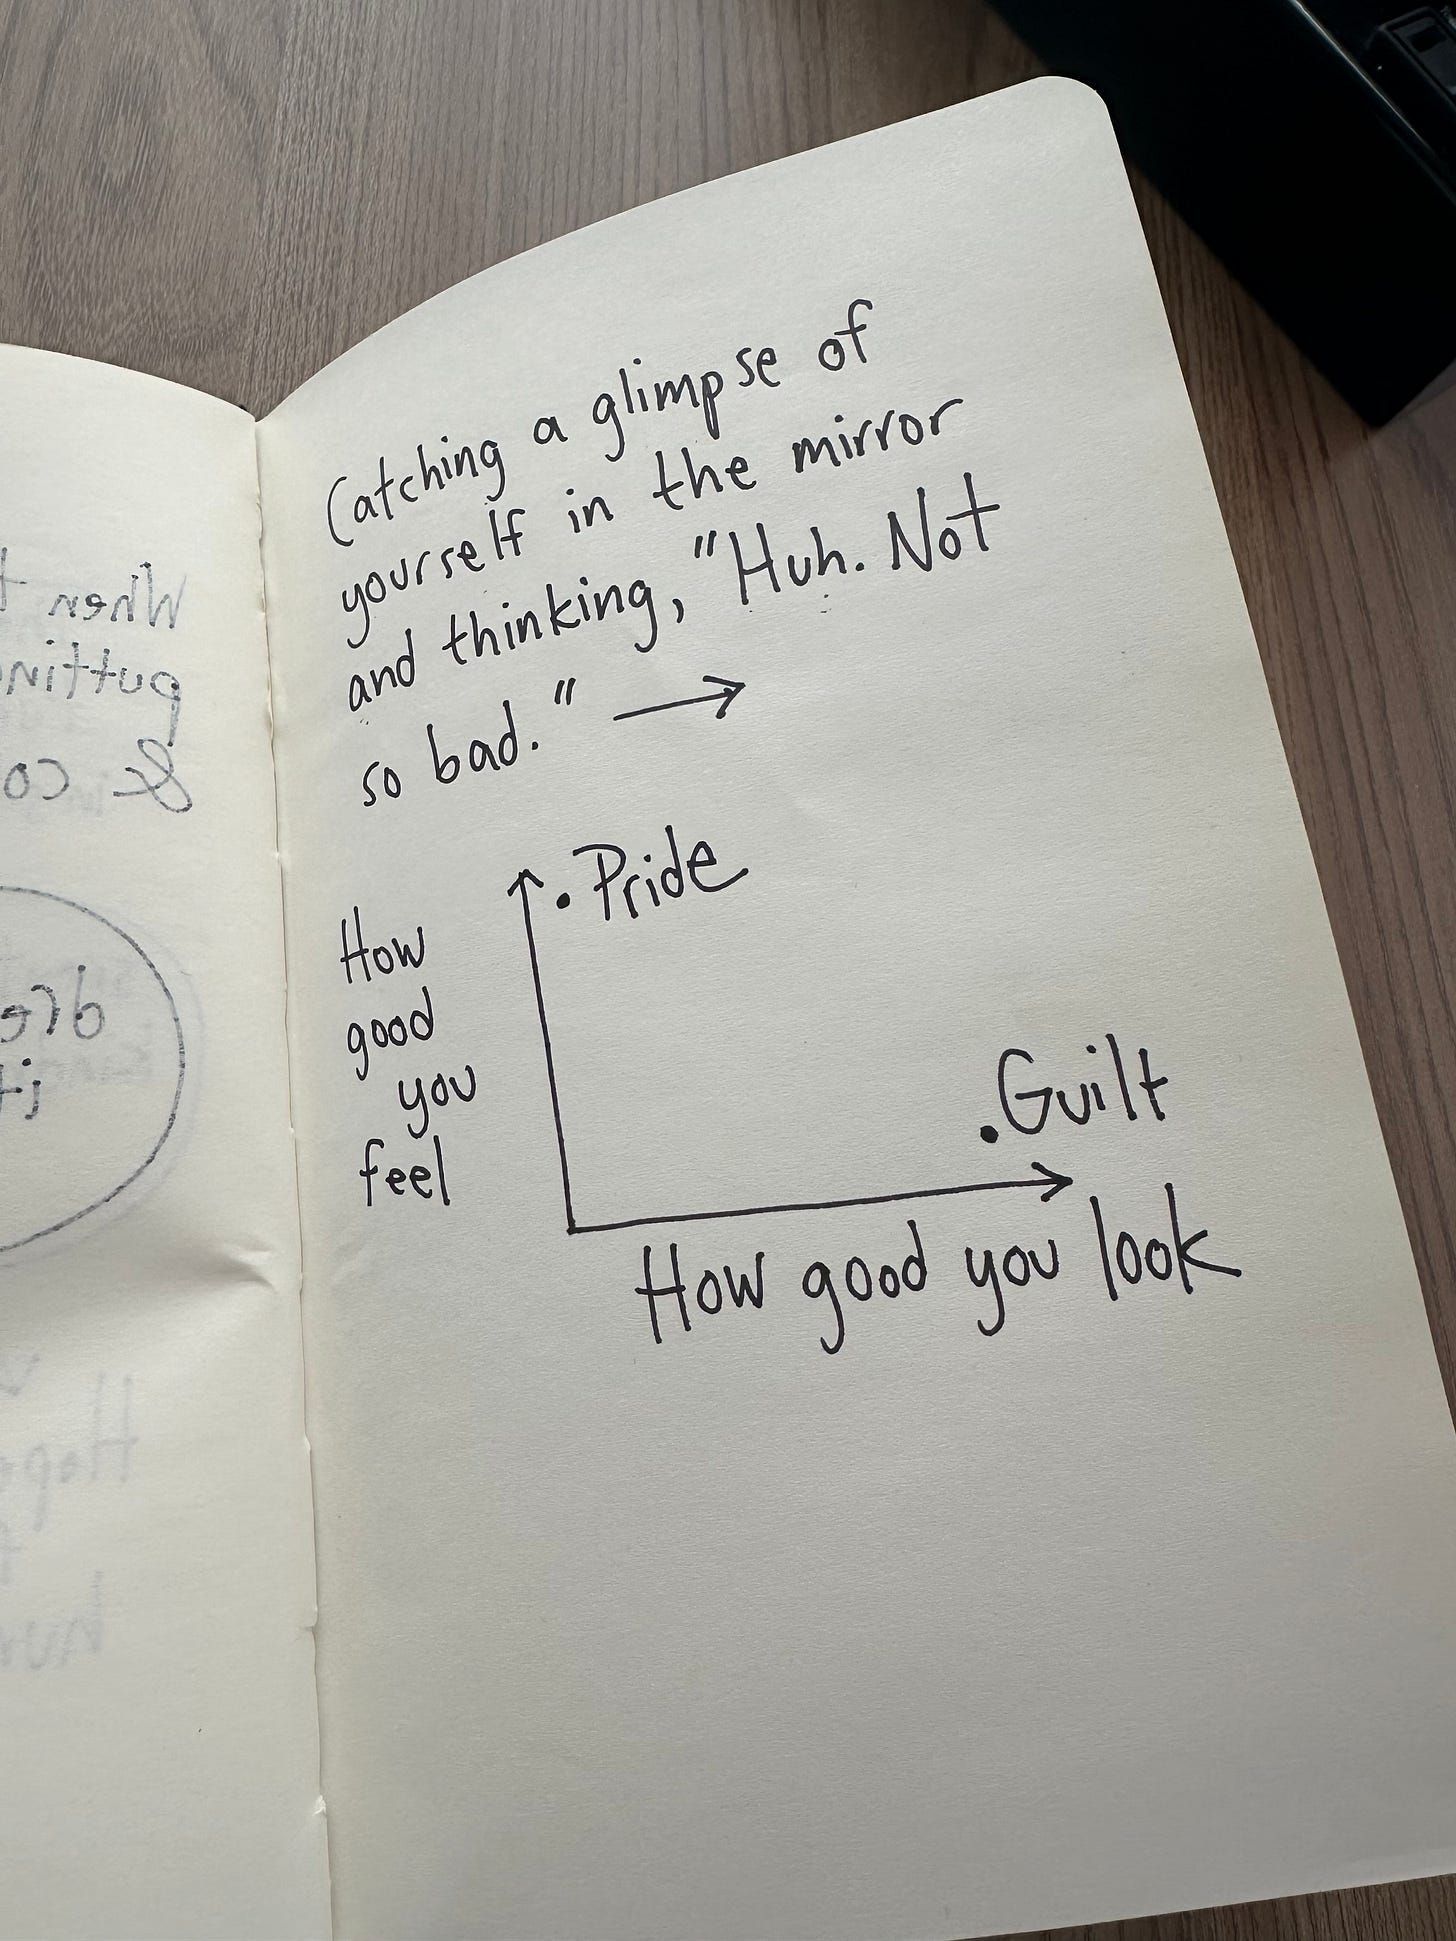 Catching a glimpse of
yourself in the mirror
and thinking, "Huh. Not
so bad." →
• Pride
How
good
you
feel
• Guilt
How good you look
When
&